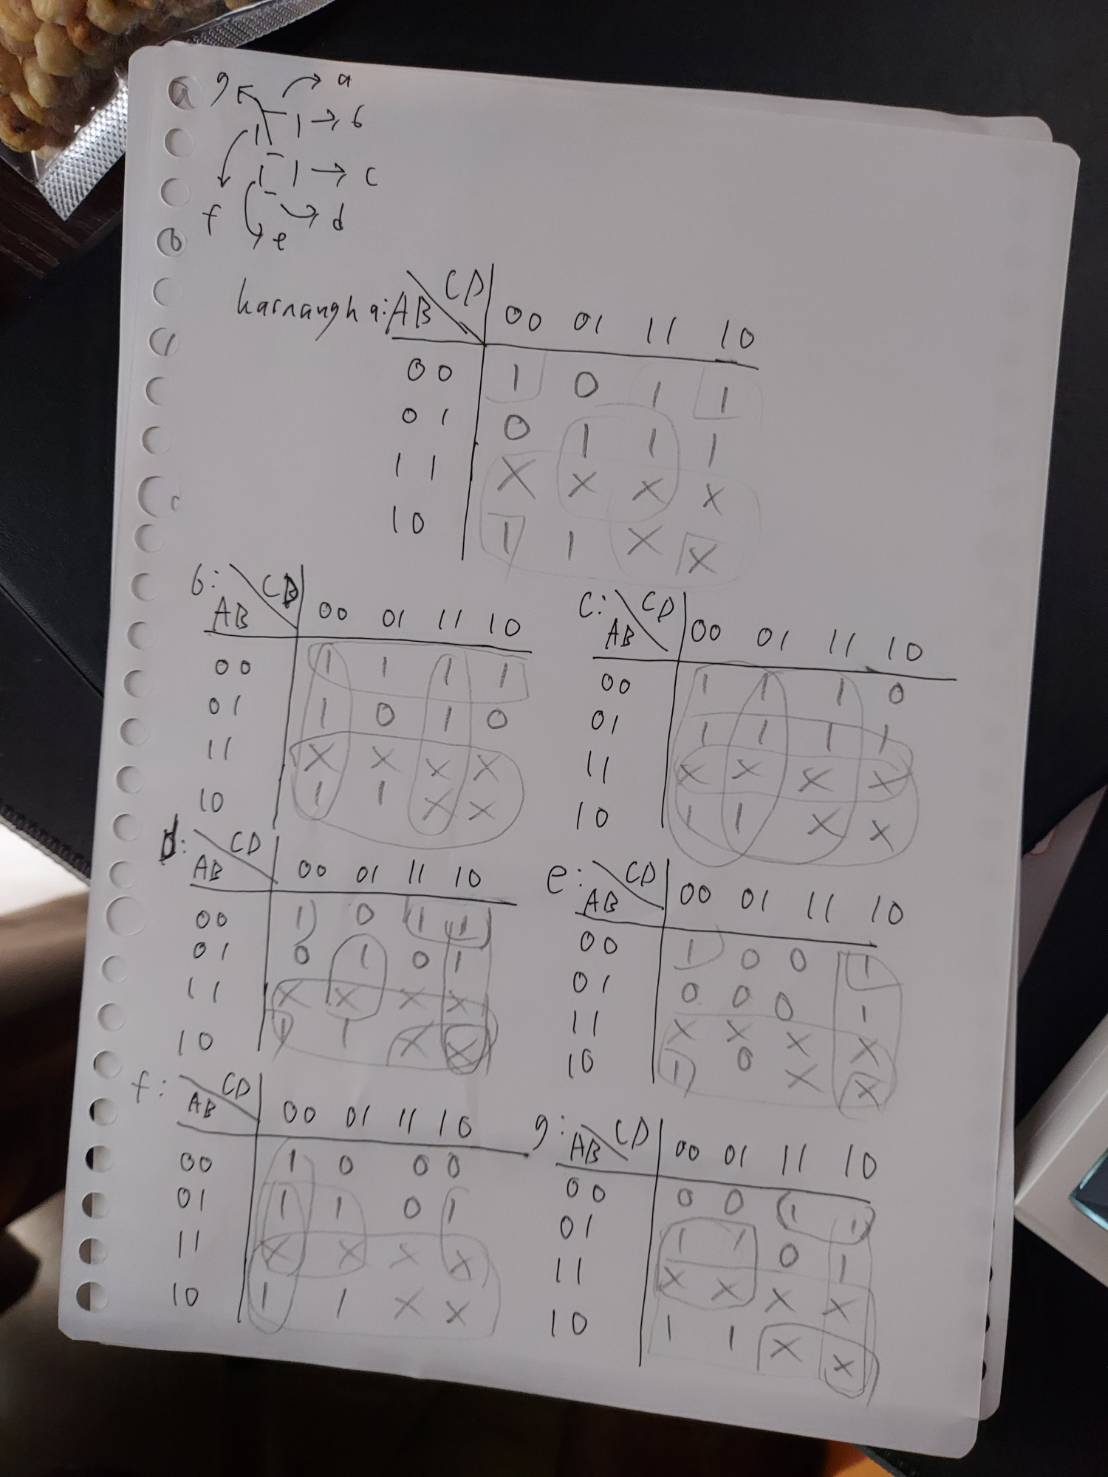 g a
b
c
f e d
karnaugh a: AB CD 00 01 11 10
00 1 0 1 1
01 0 1 1 1
11 X X X X
10 1 1 X X
b: AB CD 00 01 11 10
00 1 1 1 1
01 1 0 1 0
11 X X X X
10 1 1 X X
c: AB CD 00 01 11 10
00 1 1 1 0
01 1 1 1 1
11 X X X X
10 1 1 X X
d: AB CD 00 01 11 10
00 1 0 1 1
01 0 1 0 1
11 X X X X
10 1 1 X X
e: AB CD 00 01 11 10
00 1 0 0 1
01 0 0 0 1
11 X X X X
10 1 0 X X
f: AB CD 00 01 11 10
00 1 0 0 0
01 1 1 0 1
11 X X X X
10 1 1 X X
g: AB CD 00 01 11 10
00 0 0 1 1
01 1 1 0 1
11 X X X X
10 1 1 X X